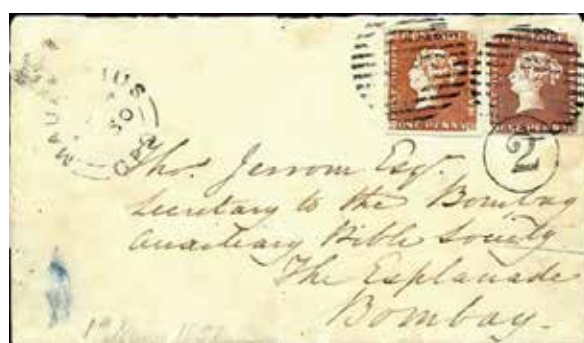 MAURITIUS
ONE PENNY ONE PENNY
2
Thos. Jerrom Esqr.
Secretary to the Bombay
Auxiliary Bible Society
The Esplanade
Bombay.